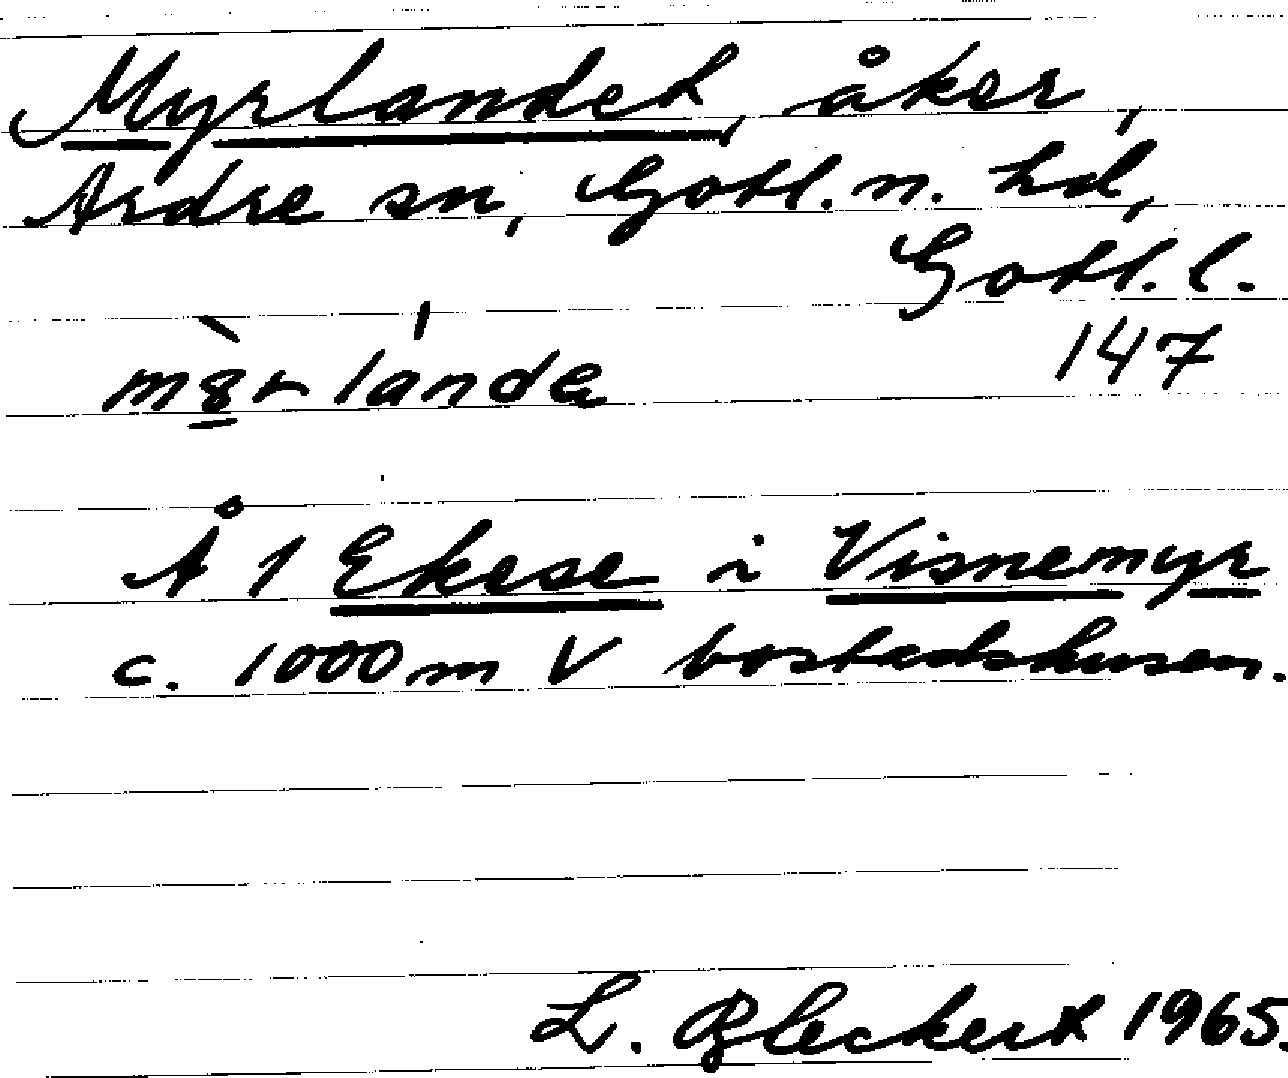 Myrlandet, åker,
Ardre sn, Gotl. n. hd,
Gotl. l.
147
Å 1 Ekese i Visnemyr
c. 1000 m V bostadshusen.
L. Bleckert 1965.